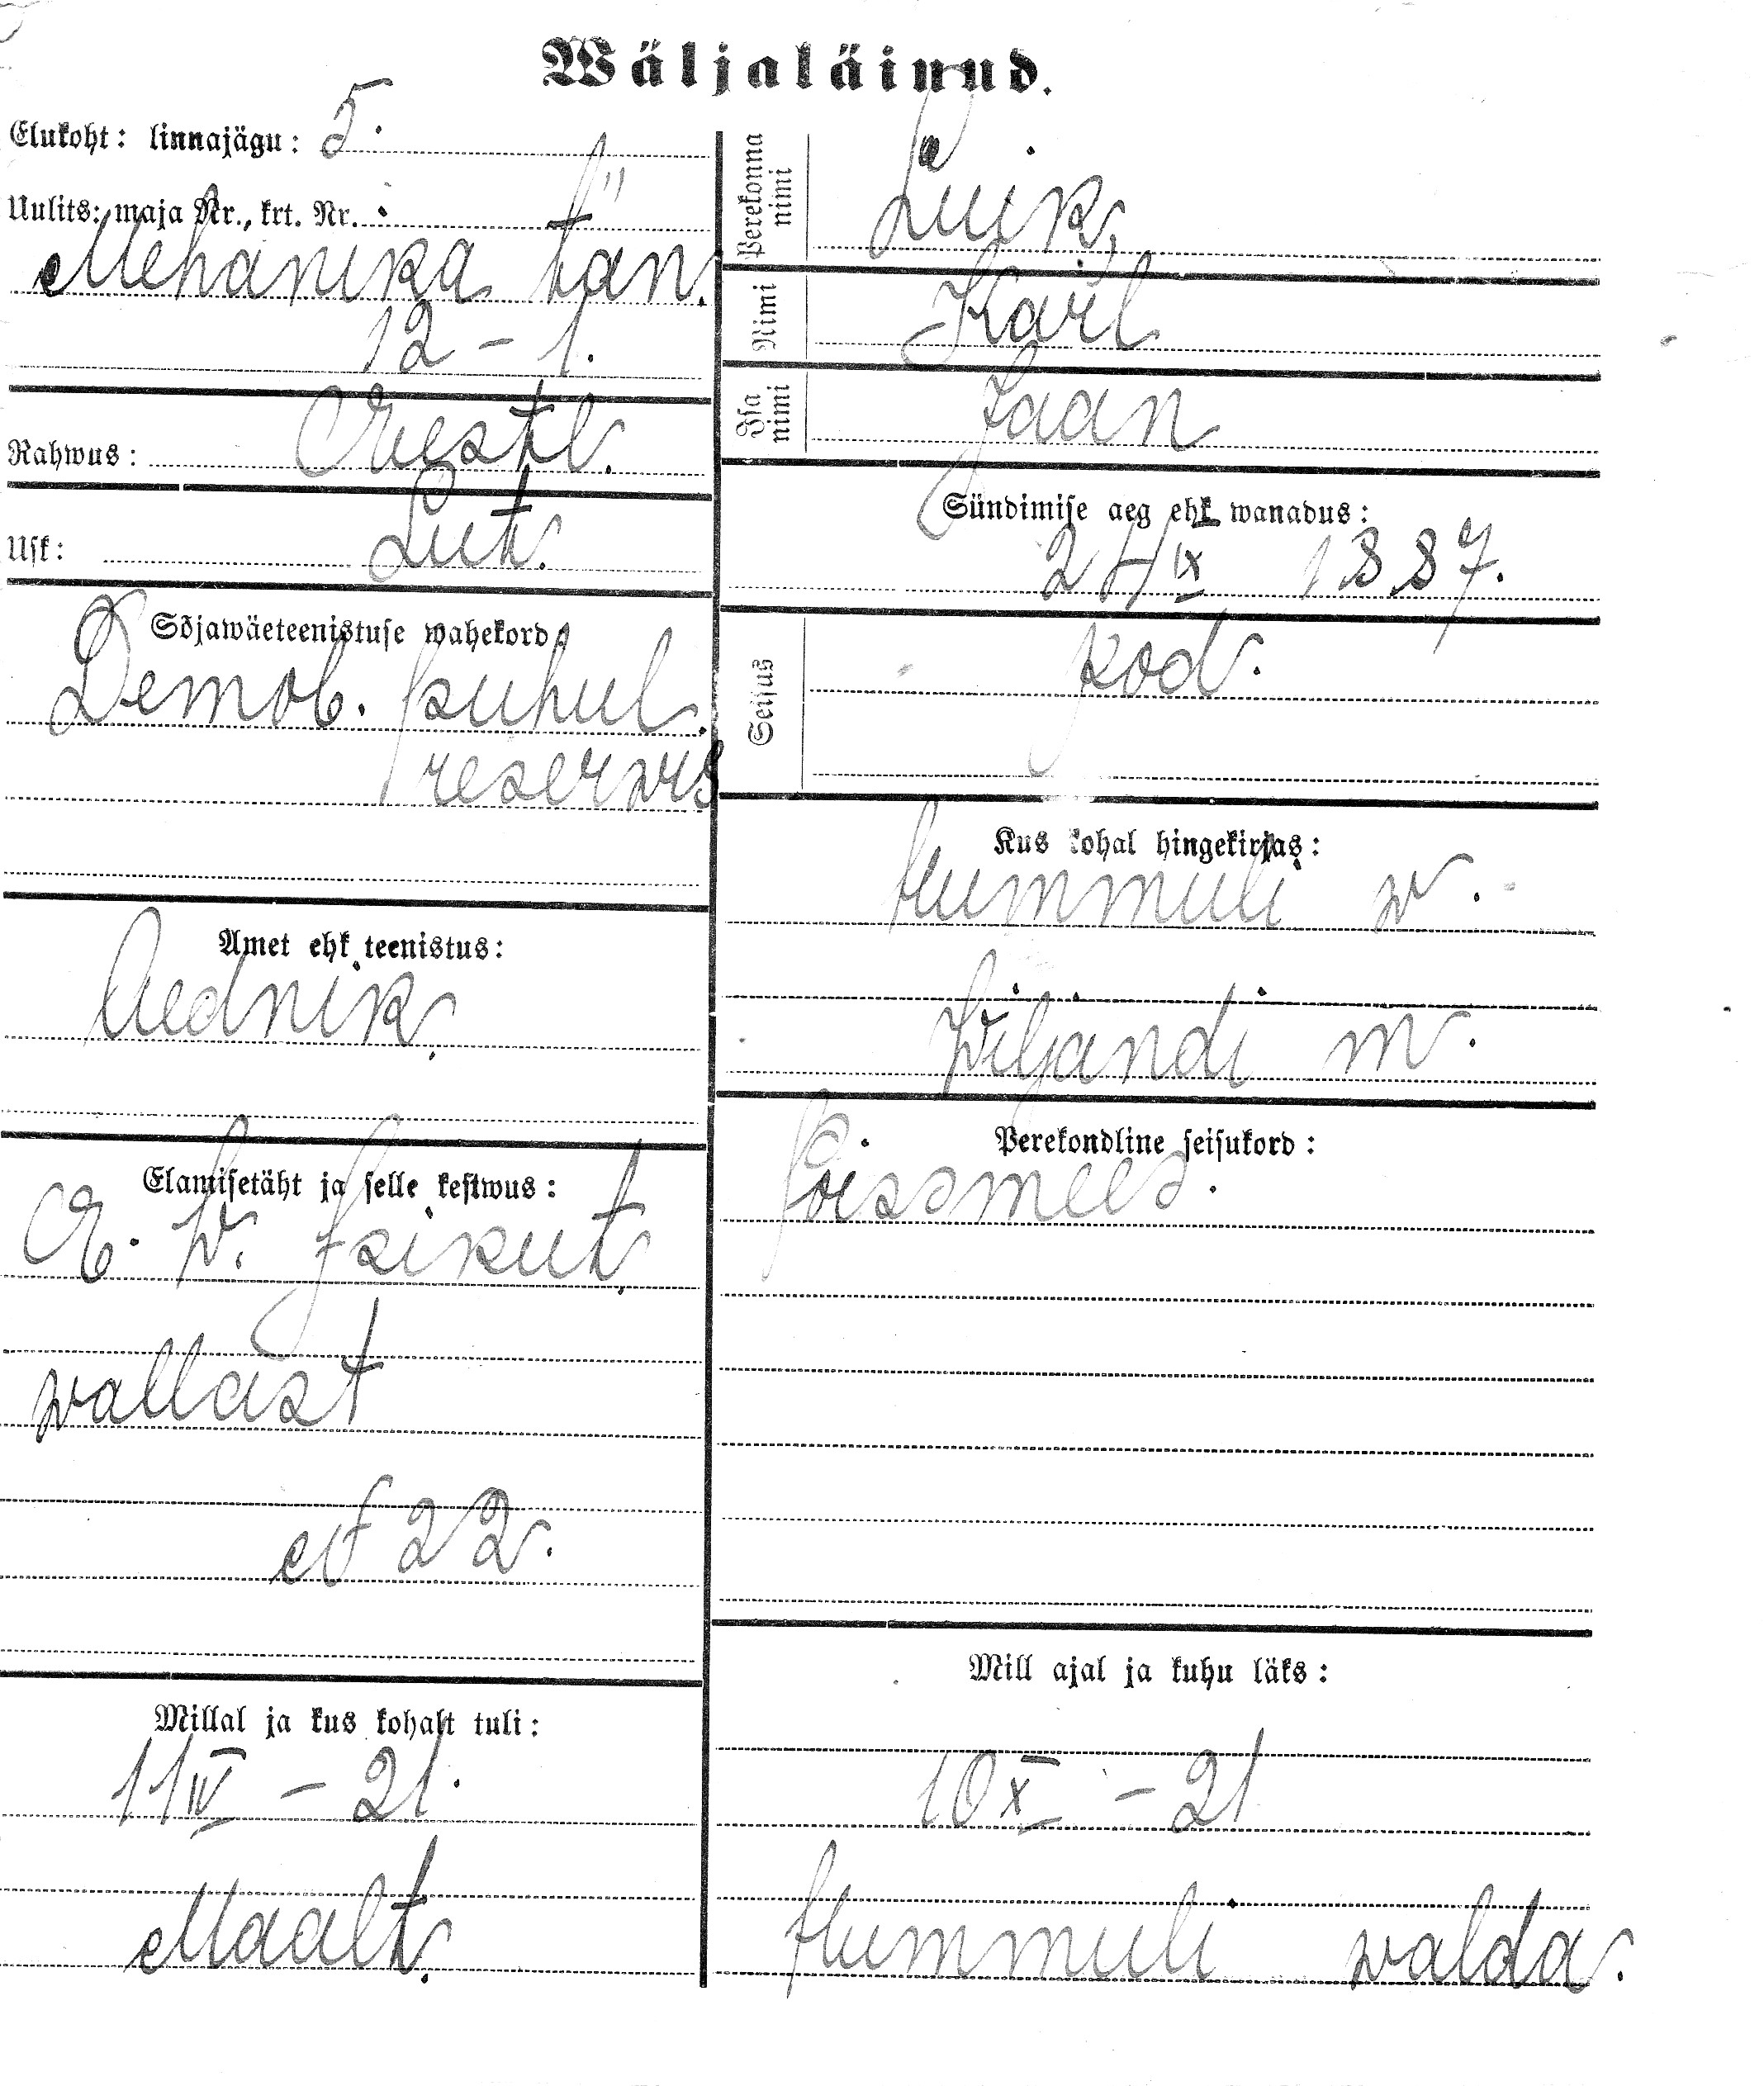 Wäljaläinud.
Elukoht: linnajägu: 5.
Uulits: maja Nr., krt. Nr.
Mehanika tän.
12 – 1.
Rahwus: Eestl.
Usk: Lut.
Sõjawäeteenistuse wahekord:
Demob. puhul
reserwis
Amet ehk teenistus:
Aednik.
Elamisetäht ja selle kestwus:
E. W. Isikut.
wallast
№ 22.
Millal ja kus kohalt tuli:
11 IV – 21.
Maalt.
Perekonna nimi Luik,
Nimi Karl
Isa nimi Jaan
Sündimise aeg ehk wanadus:
24 IX 1887.
Seisus kod.
Kus kohal hingekirjas:
Hummuli w.
Wiljandi m.
Perekondline seisukord:
Poissmees.
Mill ajal ja kuhu läks:
10 X – 21
Hummuli walda.